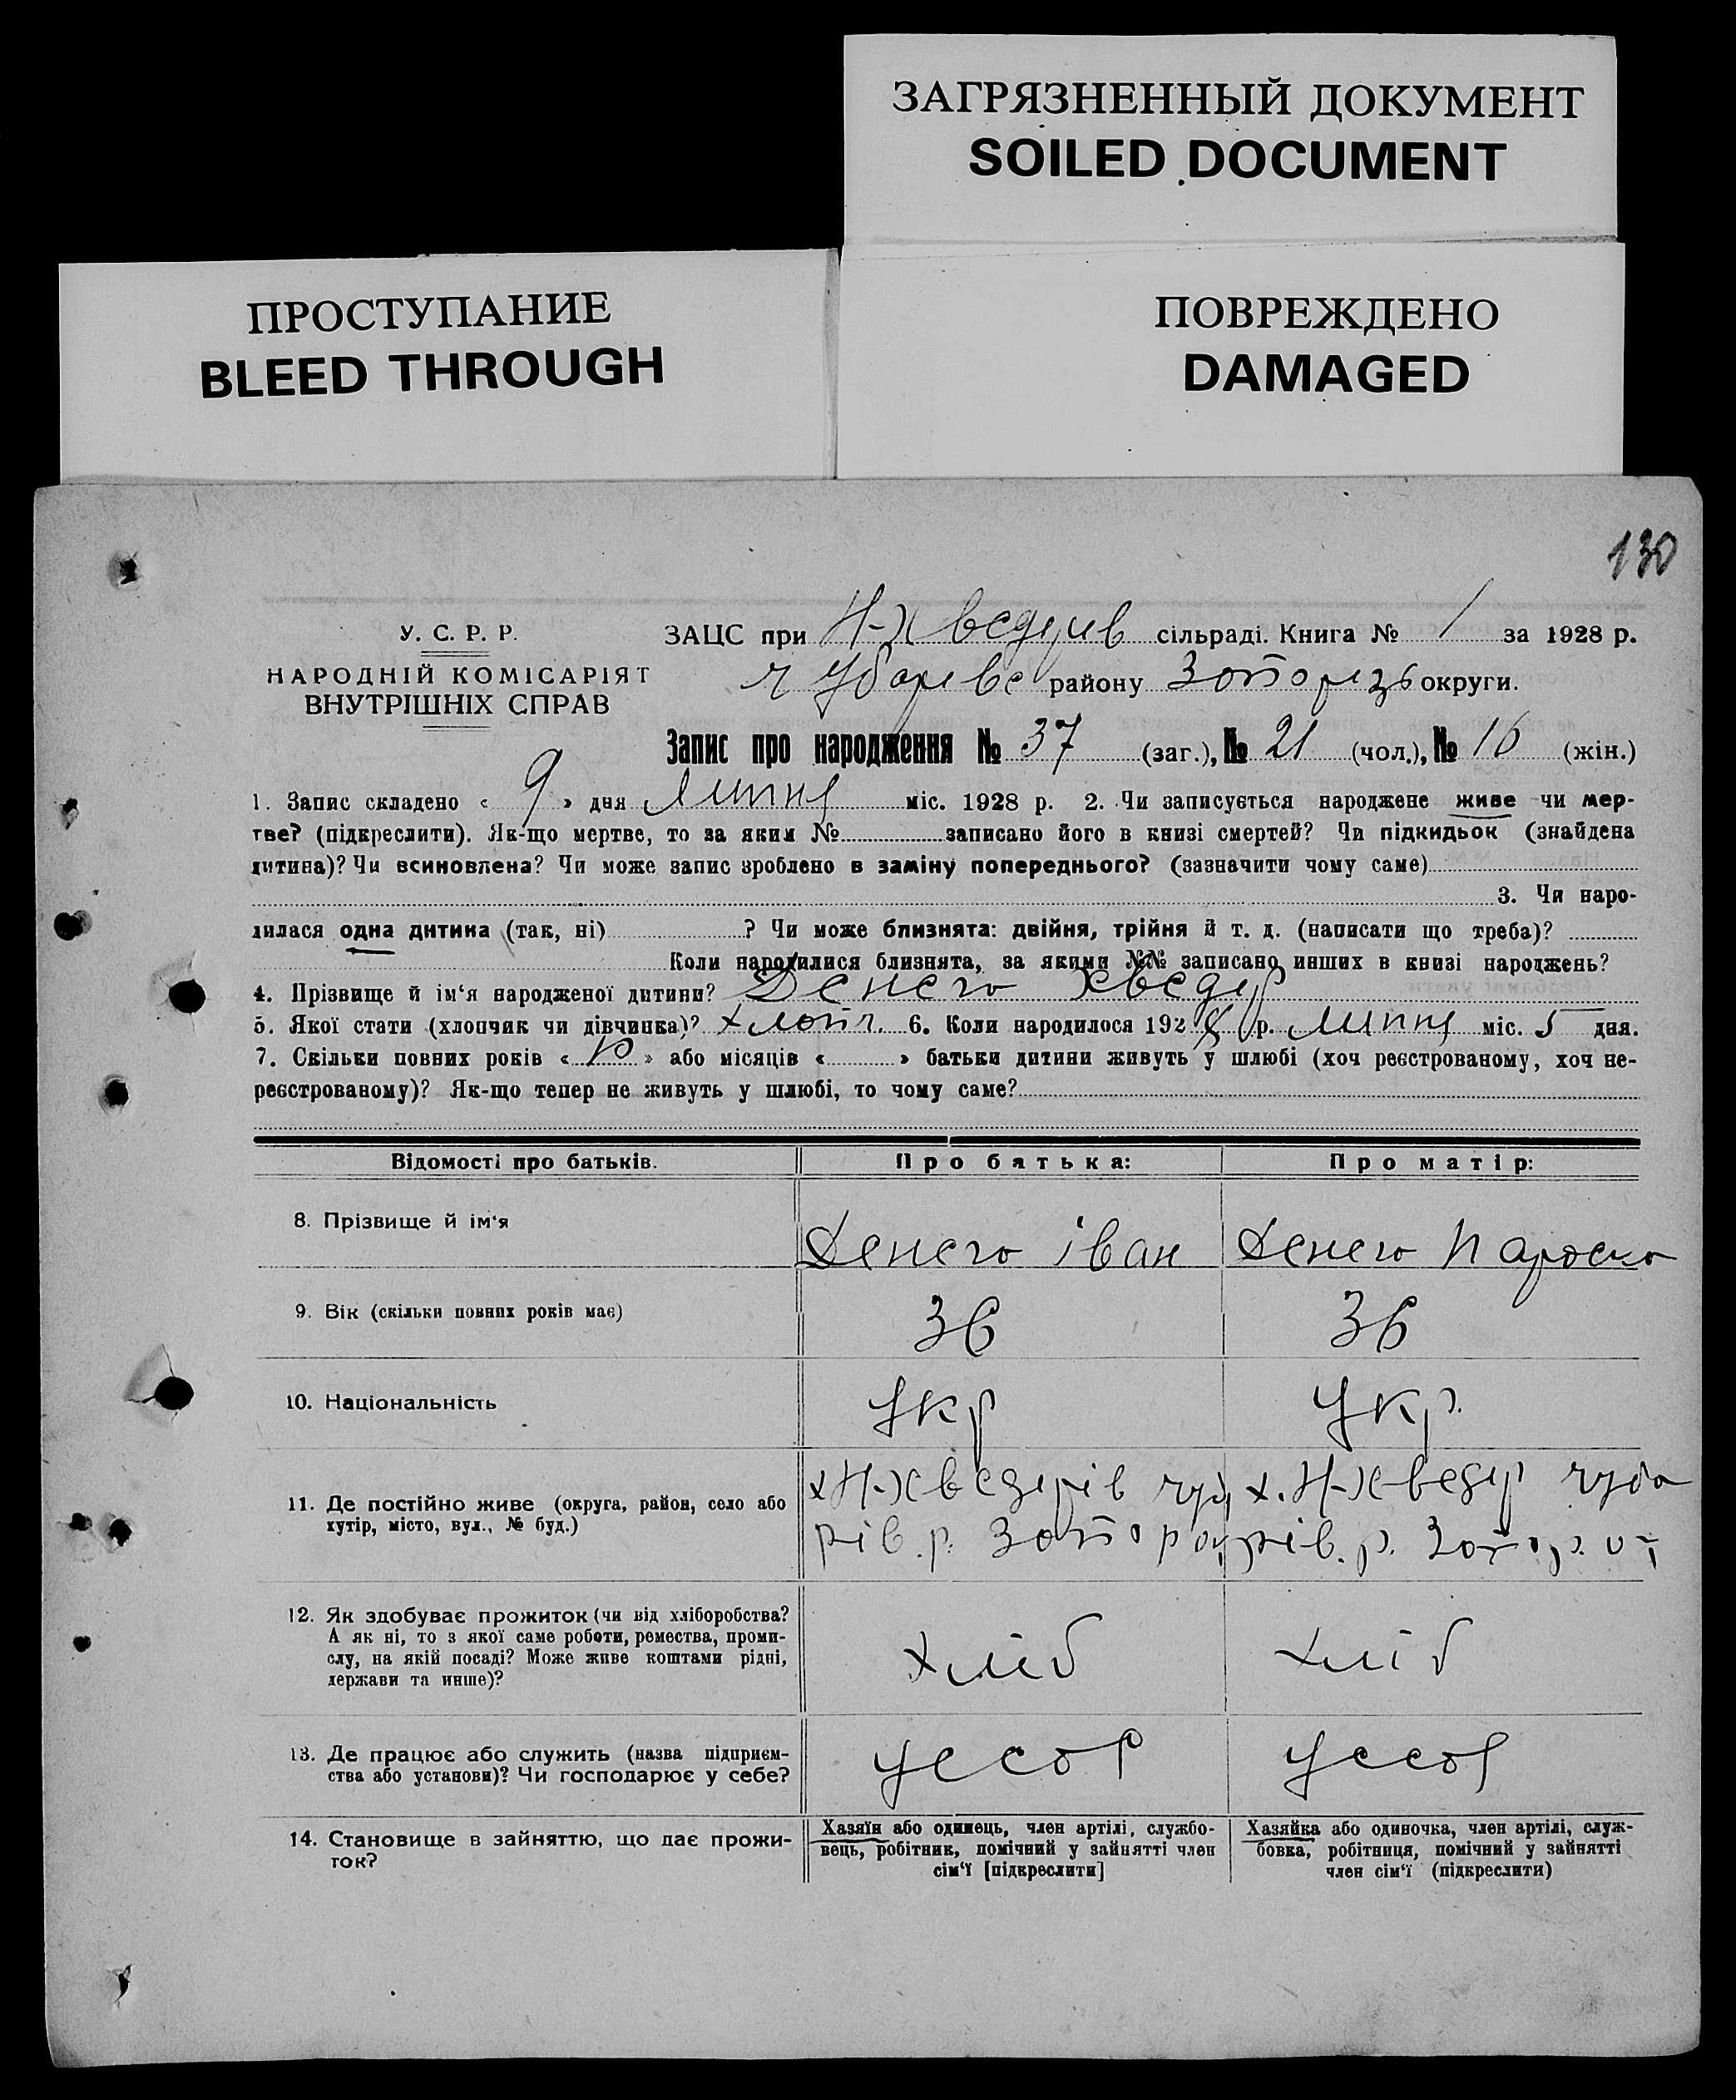 ЗАГРЯЗНЕННЫЙ ДОКУМЕНТ
SOILED DOCUMENT
ПРОСТУПАНИЕ
BLEED THROUGH
ПОВРЕЖДЕНО
DAMAGED
130
У. С. Р. Р.
НАРОДНІЙ КОМІСАРІЯТ
ВНУТРІШНІХ СПРАВ
ЗАЦС при Н-Хведерів сільраді. Книга № 1 за 1928 р.
району округи.
Запис про народження № 37 (заг.), № 21 (чол.), № 16 (жін.)
1. Запис складено « 9 » дня Липня міс. 1928 р. 2. Чи записується народжене живе чи мер-
тве? (підкреслити). Як-що мертве, то за яким № записано його в книзі смертей? Чи підкидьок (знайдена
дитина)? Чи всиновлена? Чи може запис зроблено в заміну попереднього? (зазначити чому саме)
3. Чи наро-
дилася одна дитина (так, ні) ? Чи може близнята: двійня, трійня й т. д. (написати що треба)?
Коли народилися близнята, за якими №№ записано инших в книзі народжень?
4. Прізвище й ім'я народженої дитини? Денега Хведір
5. Якої стати (хлопчик чи дівчинка)? хлопч. 6. Коли народилося 1928 р. Липня міс. 5 дня.
7. Скільки повних років « » або місяців « » батьки дитини живуть у шлюбі (хоч реєстрованому, хоч не-
реєстрованому)? Як-що тепер не живуть у шлюбі, то чому саме?
Відомості про батьків. Про батька: Про матір:
8. Прізвище й ім'я Денега Іван Денега Параска
9. Вік (скільки повних років має) 36 36
10. Національність Укр Укр.
11. Де постійно живе (округа, район, село або
хутір, місто, вул., № буд.)
х Н-Хведерів чуб х. Н-Хведер чуба
рів. р. Запор рів. р. Запор.
12. Як здобуває прожиток (чи від хліборобства?
А як ні, то з якої саме роботи, ремества, проми-
слу, на якій посаді? Може живе коштами рідні,
держави та инше)?
хліб хліб
13. Де працює або служить (назва підприєм-
ства або установи)? Чи господарює у себе?
14. Становище в зайняттю, що дає прожи-
ток?
Хазяїн або одинець, член артілі, службо-
вець, робітник, помічний у зайнятті член
сім'ї [підкреслити]
Хазяйка або одиночка, член артілі, служ-
бовка, робітниця, помічний у зайнятті
член сім'ї (підкреслити)